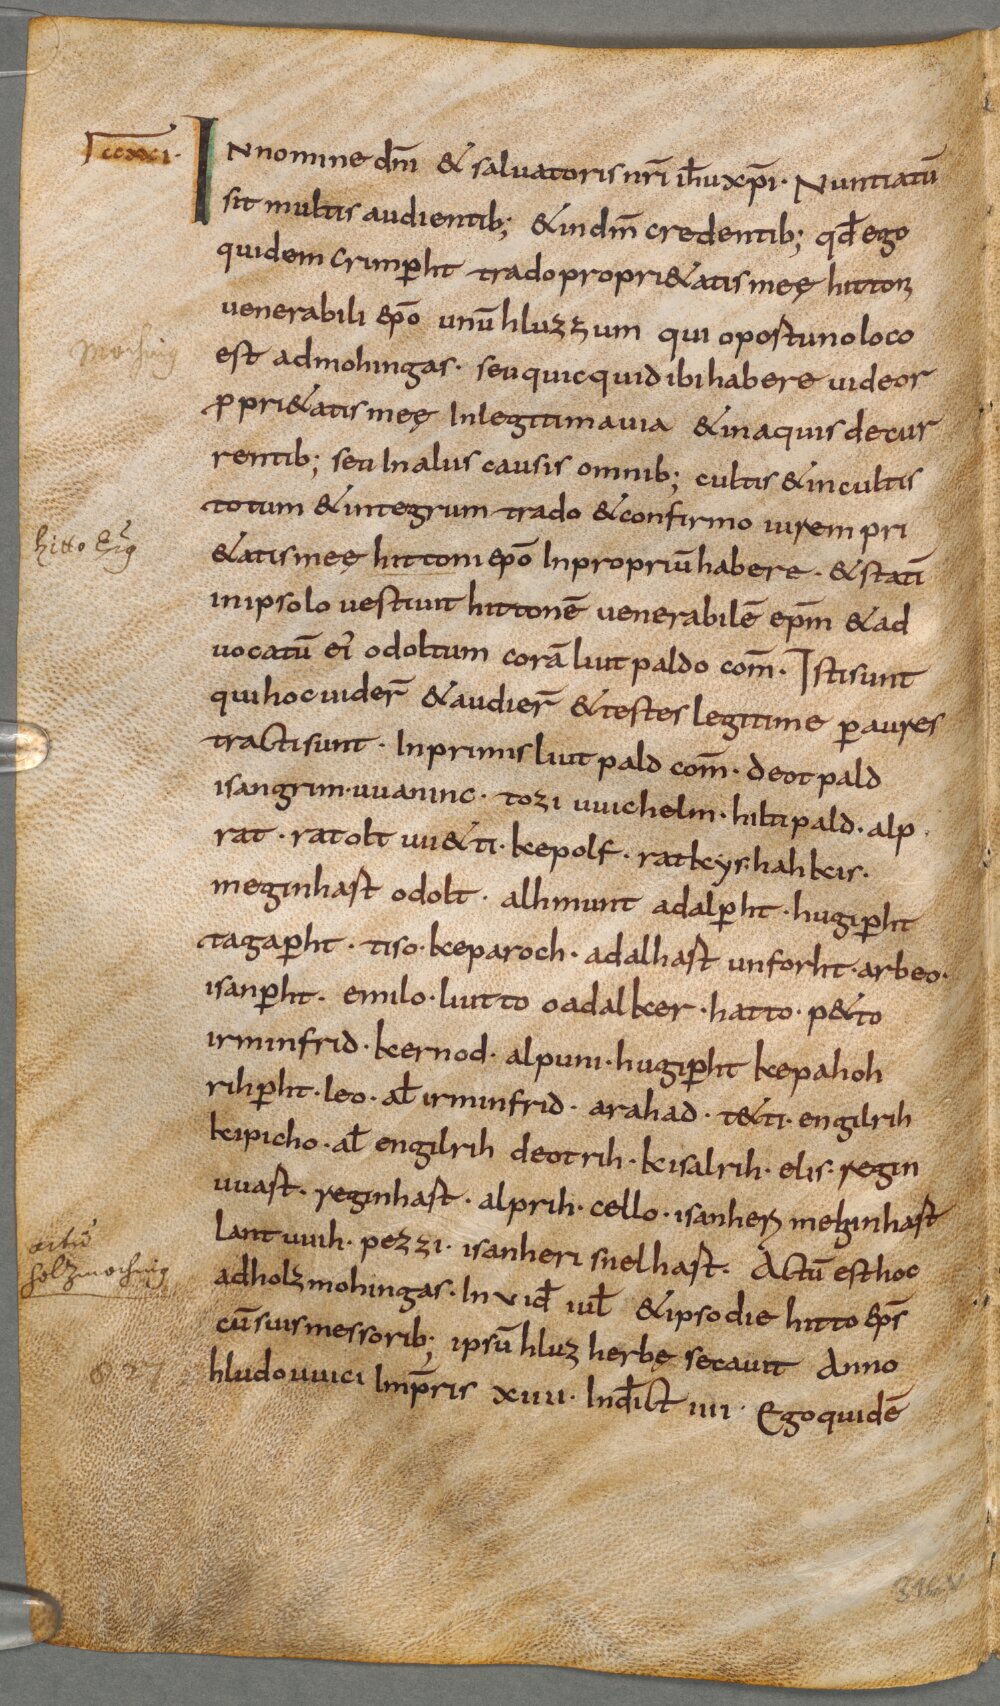 ccxxi·
IN nomine dn̄i & saluatoris nr̄i ih̄u xp̄i· Nuntiatū
sit multis audientib; & in dm̄ credentib; qd̄ ego
quidem crimp̄ht trado propri&atis meę hittoni
venerabili ep̄o unū hluzzum qui opostuno loco
est ad mohingas· seu quicquid ibi habere uideor
p̄pri&atis meę In legitima uia & in aquis decur
rentib; seu In aliis causis omnib; cultis & incultis
totum & integrum trado & confirmo iurem pri
&atis meę hittoni ep̄o In propriū habere· & statī
in ipso lo vestiuit hittonē venerabilē ep̄m & ad
uocatū eī odoltum corā liutpaldo com̄· Isti sunt
qui hoc uider̄ & audier̄ & testes legitime p̄ aures
tracti sunt· In primis liutpald com̄· deotpald
isangrim· uuaninc· tozi uuichelm· hiltipald· alp
rat· ratolt uu&ti· kepolf· ratkys· hahkis·
meginhast odolt· alhmunt adalp̄ht· hugip̄ht
tagap̄ht· tiso· keparoch· adalhast unforht· arbeo·
isanp̄ht· emilo· liutto oadalker· hatto· p&to
irminfrid· kernod· alpuni· hugip̄ht kepahoh
rihp̄ht· leo· al̄ irminfrid· arahad· t&ti· engilrih
kipicho· al̄ engilrih deotrih· kisalrih· elis· regin
uuast· reginhast· alprih· cello· isanheri meginhast
lantuuih· pezzi· isanheri snelhast· Actū est hoc
ad holzmohingas· In v id̄ iul̄ & ipso die hitto ep̄s
cū suis messorib; ipsū hluz herbę secauit Anno
hludouuici Imp̄ris xiiii· Indict̄ iiii· Ego quidē
Moching
hitto Ep̄g
actū
holzmoching
827
316v